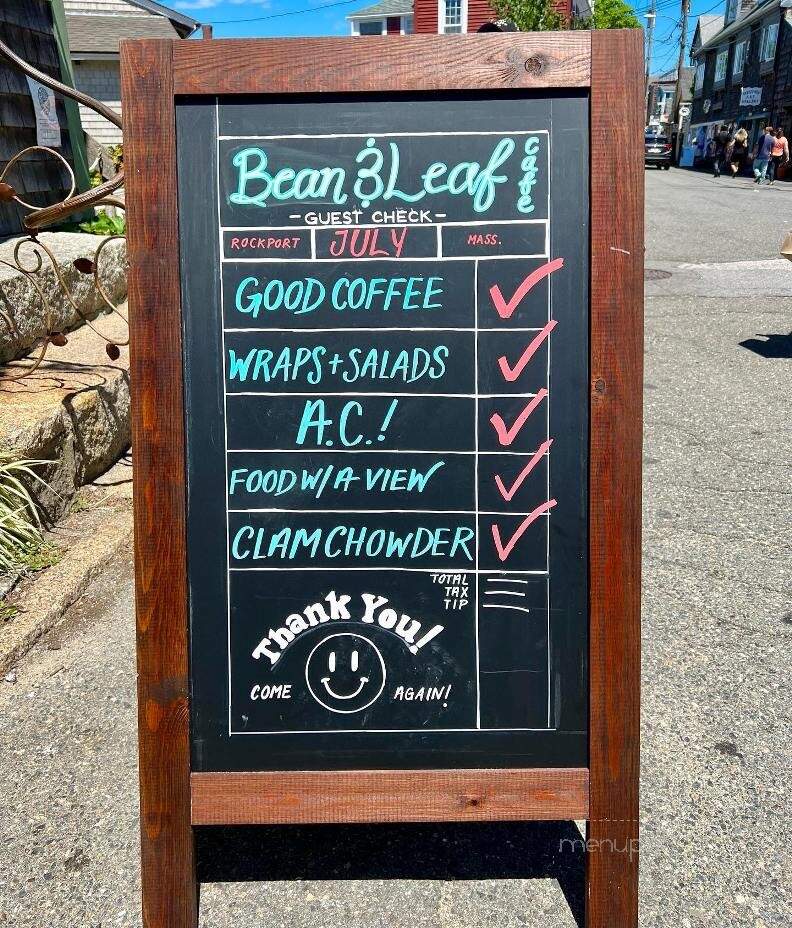 Bean & Leaf cafe
- GUEST CHECK -
ROCKPORT JULY MASS.
GOOD COFFEE
WRAPS + SALADS
A.C.!
FOOD W/ A VIEW
CLAM CHOWDER
TOTAL
TAX
TIP
Thank You!
COME AGAIN!